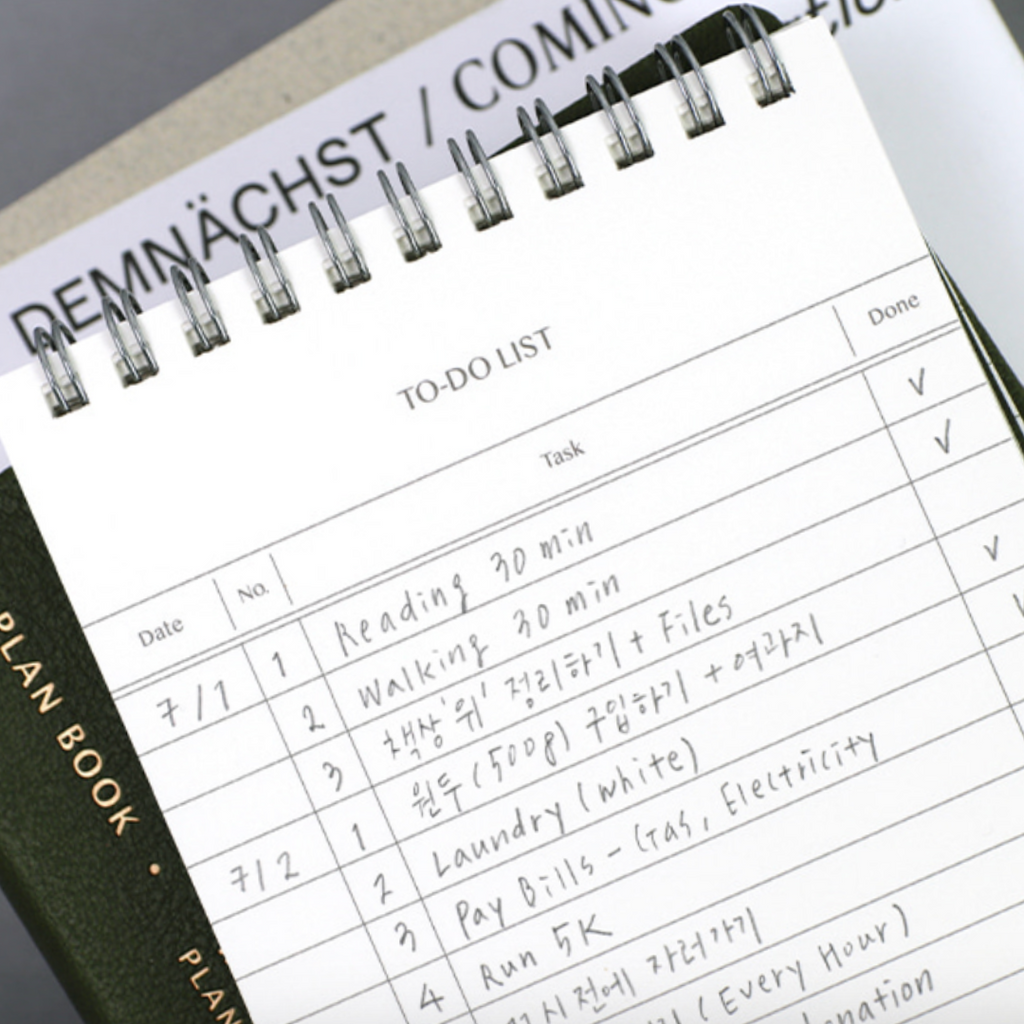 DEMNÄCHST / COMING
TO-DO LIST
Date No. Task Done
7/1 1 Reading 30 min ✓
2 Walking 30 min ✓
3 책상'위' 정리하기 + Files
7/2 1 원두(500g) 구입하기 + 여과지 ✓
2 Laundry (white)
3 Pay Bills - Gas, Electricity
4 Run 5K
시 전에 자러가기
(Every Hour)
PLAN BOOK •
PLAN